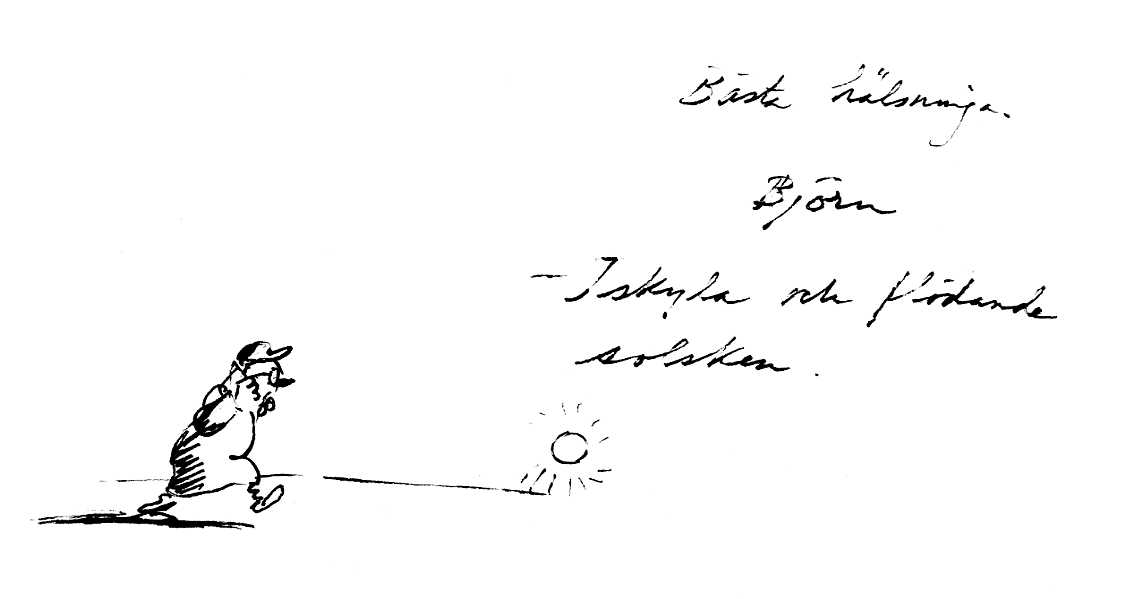 Bästa hälsninga.
Björn
- Iskyla och flödande
solsken.